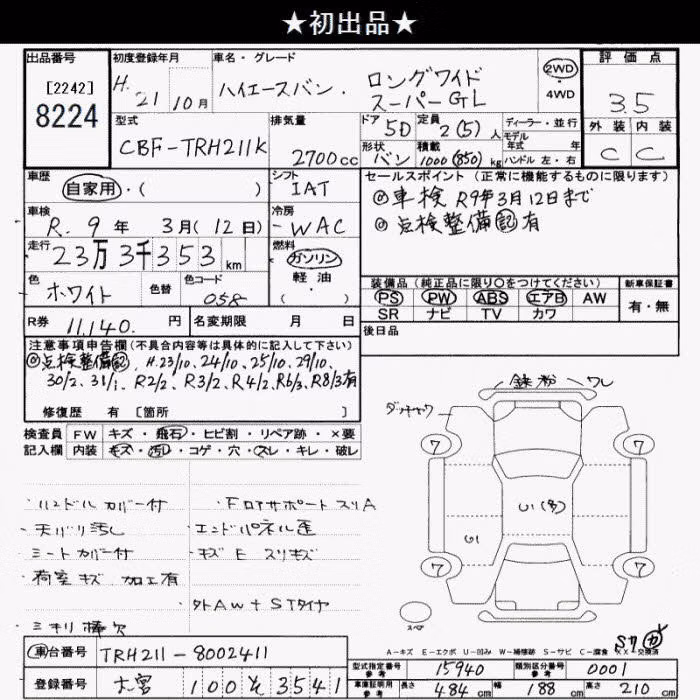 ★初出品★
出品番号
[2242]
8224
初度登録年月
H. 21年 10月
車名・グレード
ハイエースバン. ロングワイド
スーパーGL
2WD
4WD
評価点
3.5
外装 内装
C C
型式
CBF-TRH211K
排気量
2700cc
ドア 5D
定員 2(5)人
形状 バン
積載 1000(850)kg
ディーラー・並行
モデル
年式 年
ハンドル 左・右
車歴
自家用・( )
シフト
IAT
車検
R. 9年 3月(12日)
冷房
-WAC
走行
23万3千353km
燃料
ガソリン
軽油
( )
色
ホワイト
色替
色コード
058
R券 11,140.円
名変期限 月 日
セールスポイント(正常に機能するものに限ります)
◎車検 R9年3月12日まで
◎点検整備記有
装備品(純正品に限り○をつけてください)
PS PW ABS エアB AW
SR ナビ TV カワ
新車保証書
有・無
後日品
注意事項申告欄(不具合内容等は具体的に記入して下さい)
◎点検整備記、H.23/10、24/10、25/10、29/10、
30/2、31/1、R2/2、R3/2、R4/2、R6/3、R8/3有
修復歴 有 [箇所 ]
検査員 FW キズ・飛石・ヒビ割・リペア跡・×要
記入欄 内装 キズ・汚れ・コゲ・穴・スレ・キレ・破レ
・ハンドル カバー付
・天バリ汚し
・シートカバー付
・荷室キズ 加工有
・ミキリ棒欠
・FロアサポートスリA
・エンドパネル歪
・キズ E スリキズ
・外AW+STタイヤ
鉄粉 ワレ
7 7
7 7
スペア
A-キズ E-エクボ U-凹み W-補修跡 S-サビ C-腐食 XX-交換済
車台番号 TRH211-8002411
登録番号 大宮 100 そ 3541
型式指定番号
参考
15940
類別区分番号
参考
0001
車庫証明用
参考
長さ 484cm
幅 188cm
高さ 210cm